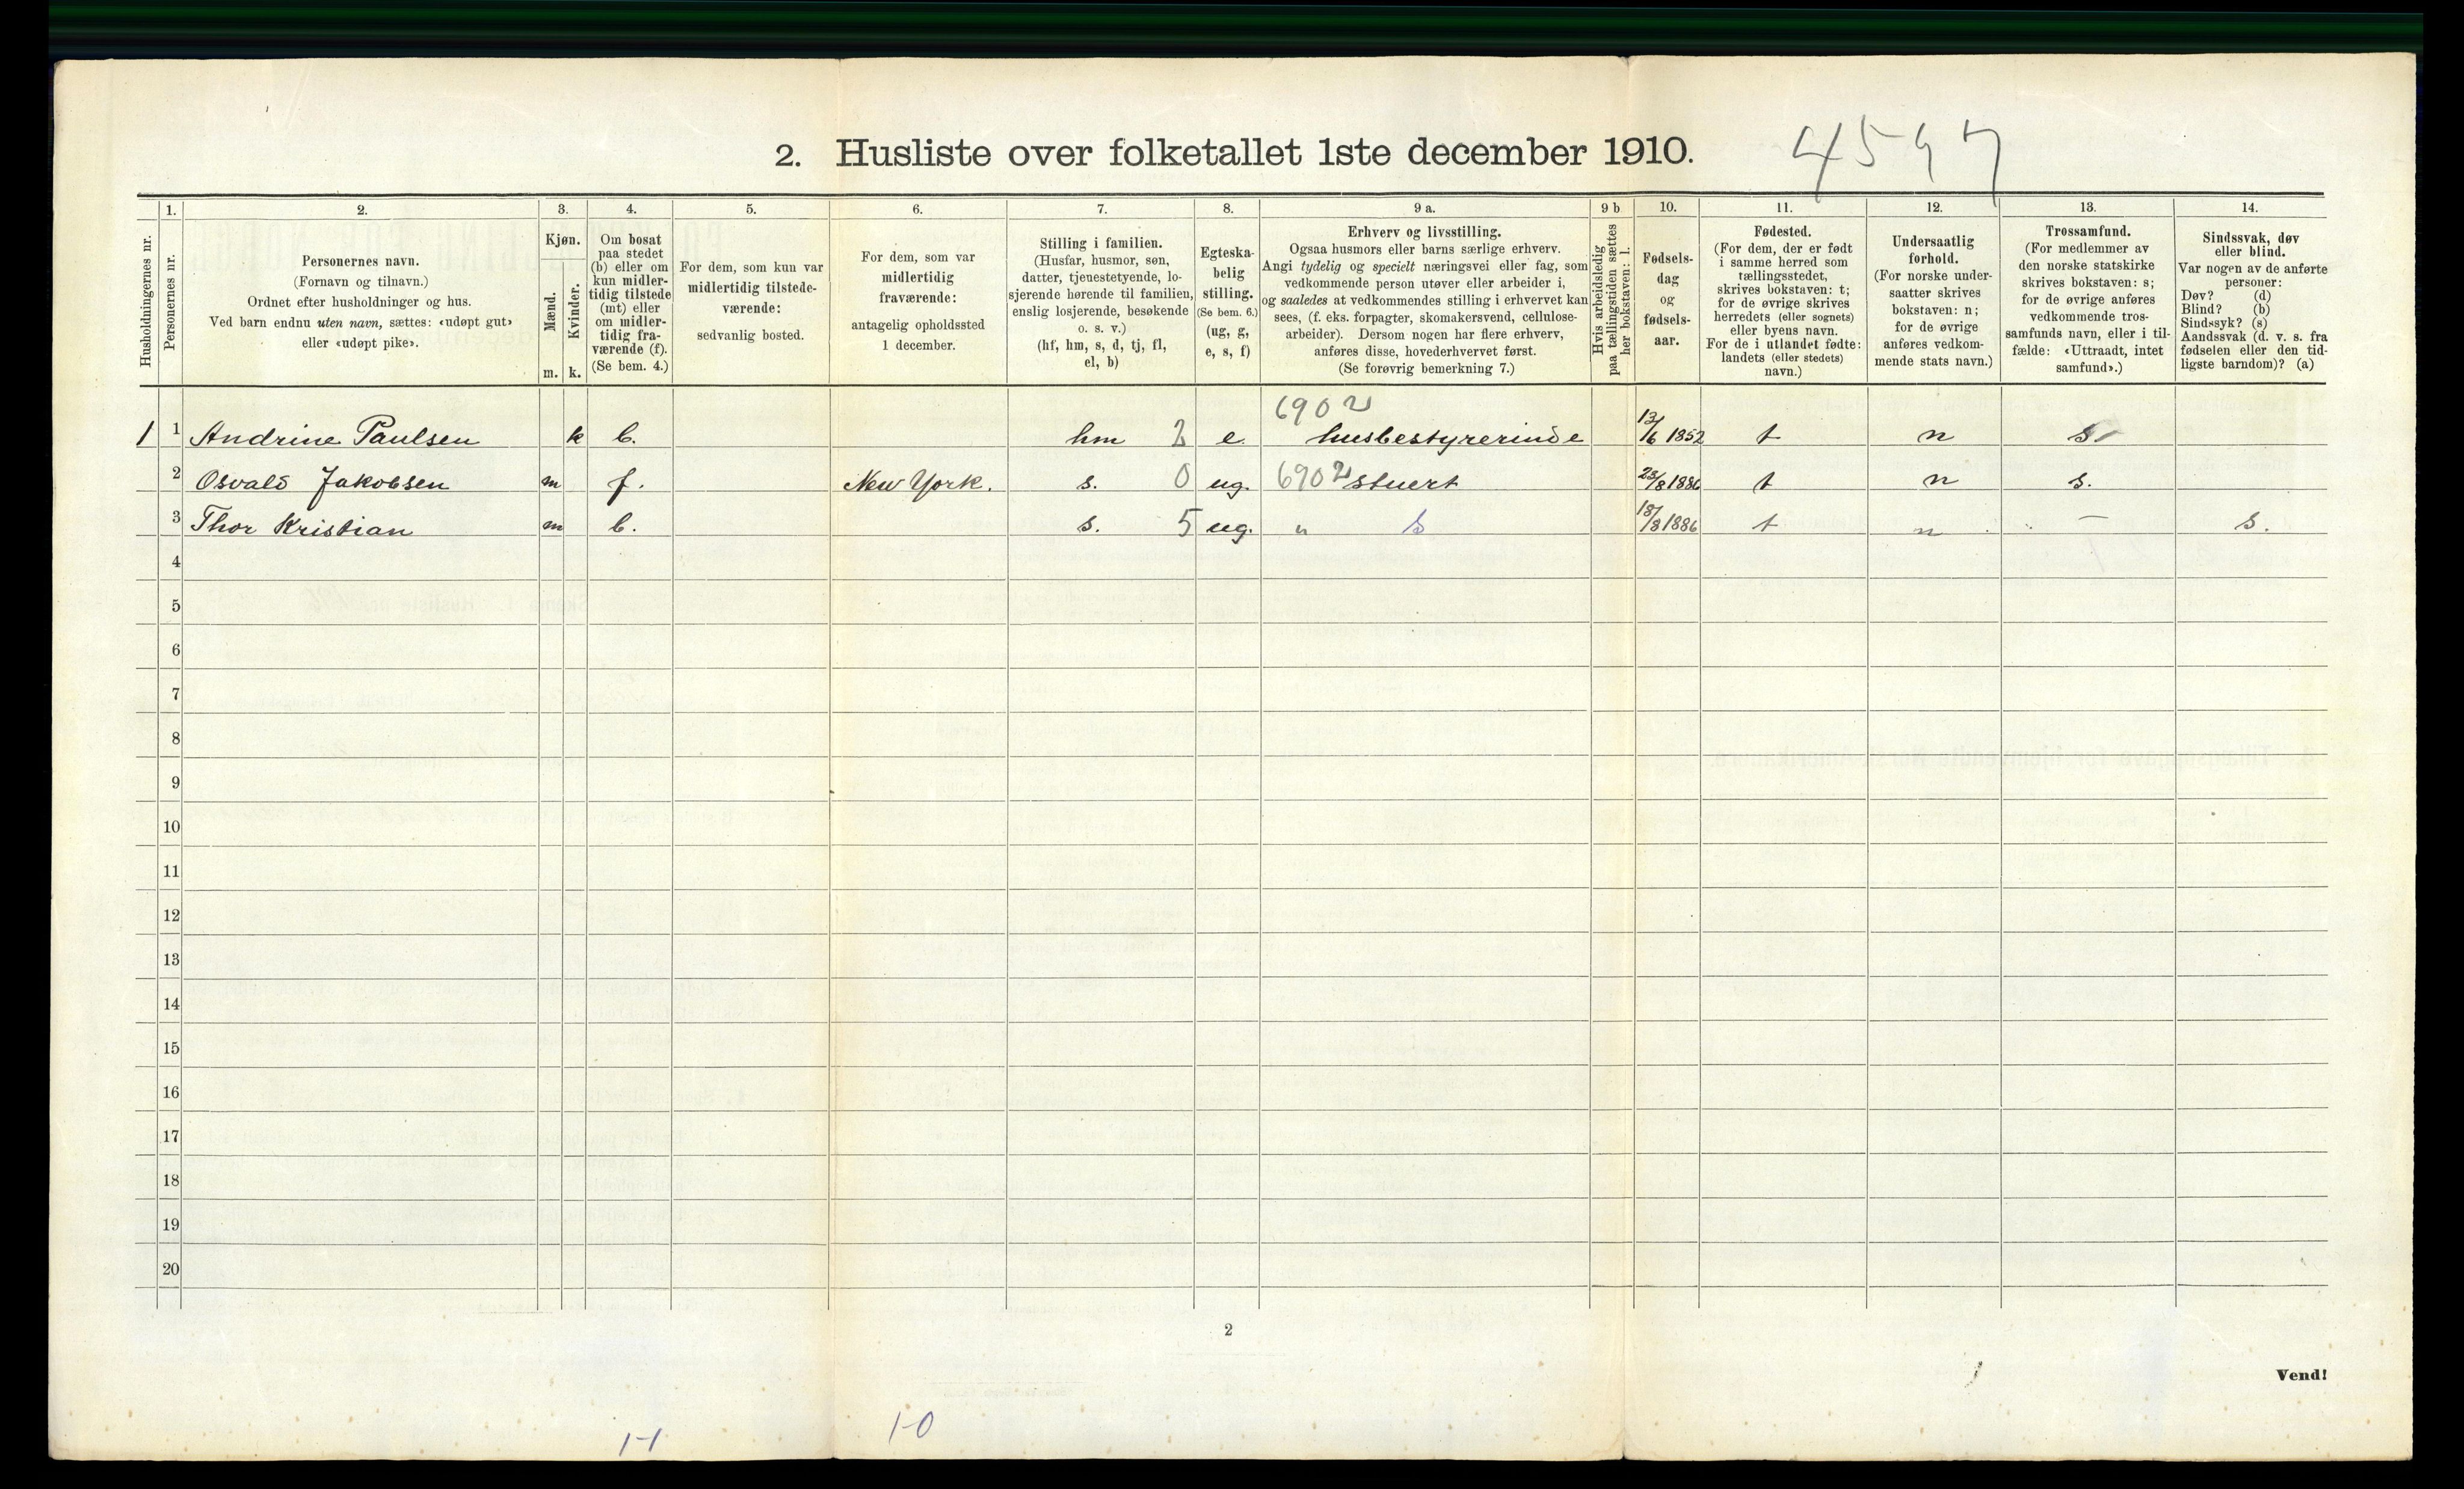 2. Husliste over folketallet 1ste december 1910.
Husholdningernes nr.
1.
Personernes nr.
2.
Personernes navn.
(Fornavn og tilnavn.)
Ordnet efter husholdninger og hus.
Ved barn endnu uten navn, sættes: «udøpt gut»
eller «udøpt pike».
3.
Kjøn.
Mænd.
Kvinder.
m. k.
4.
Om bosat
paa stedet
(b) eller om
kun midler-
tidig tilstede
(mt) eller
om midler-
tidig fra-
værende (f).
(Se bem. 4.)
5.
For dem, som kun var
midlertidig tilstede-
værende:
sedvanlig bosted.
6.
For dem, som var
midlertidig
fraværende:
antagelig opholdssted
1 december.
7.
Stilling i familien.
(Husfar, husmor, søn,
datter, tjenestetyende, lo-
sjerende hørende til familien,
enslig losjerende, besøkende
o. s. v.)
(hf, hm, s, d, tj, fl,
el, b)
8.
Egteska-
belig
stilling.
(Se bem. 6.)
(ug, g,
e, s, f)
9 a.
Erhverv og livsstilling.
Ogsaa husmors eller barns særlige erhverv.
Angi tydelig og specielt næringsvei eller fag, som
vedkommende person utøver eller arbeider i,
og saaledes at vedkommendes stilling i erhvervet kan
sees, (f. eks. forpagter, skomakersvend, cellulose-
arbeider). Dersom nogen har flere erhverv,
anføres disse, hovederhvervet først.
(Se forøvrig bemerkning 7.)
9 b
Hvis arbeidsledig
paa tællingstiden sættes
her bokstaven: l.
10.
Fødsels-
dag
og
fødsels-
aar.
11.
Fødested.
(For dem, der er født
i samme herred som
tællingsstedet,
skrives bokstaven: t;
for de øvrige skrives
herredets (eller sognets)
eller byens navn.
For de i utlandet fødte:
landets (eller stedets)
navn.)
12.
Undersaatlig
forhold.
(For norske under-
saatter skrives
bokstaven: n;
for de øvrige
anføres vedkom-
mende stats navn.)
13.
Trossamfund.
(For medlemmer av
den norske statskirke
skrives bokstaven: s;
for de øvrige anføres
vedkommende tros-
samfunds navn, eller i til-
fælde: «Uttraadt, intet
samfund».)
14.
Sindssvak, døv
eller blind.
Var nogen av de anførte
personer:
Døv? (d)
Blind? (b)
Sindssyk? (s)
Aandssvak (d. v. s. fra
fødselen eller den tid-
ligste barndom)? (a)
6902
1 1 Andrine Paulsen k b. hm 2 e. husbestyrerinde 13/6 1852 t n s
2 Osvald Jakobsen m f. New York. s. 0 ug. 6902 stuert 23/8 1886 t n s.
3 Thor Kristian m b. s. 5 ug. " s 18/8 1886 t n " — s.
4
5
6
7
8
9
10
11
12
13
14
15
16
17
18
19
20
2
Vend!
1-1
1-0